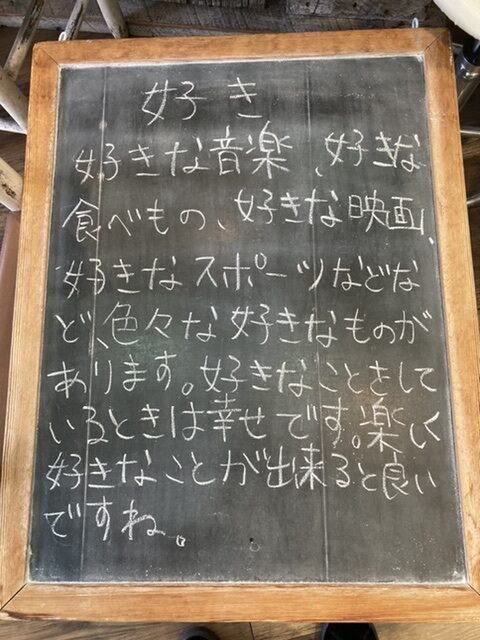 好き
好きな音楽、好きな
食べもの、好きな映画、
好きなスポーツなどな
ど、色々な好きなものが
あります。好きなことをして
いるときは幸せです。楽しく
好きなことが出来ると良い
ですね。